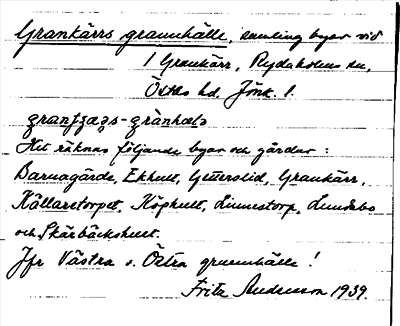 Grankärrs grannhälle, samling byar vid
1 Grankärr, Rydaholms sn,
Östbo hd. Jönk. l.
granʃʒaʒs-grànhæls
Hit räknas följande byar och gårdar:
Barnagårde, Ekhult, Getterslid, Grankärr,
Källaretorpet, Köphult, Linnestorp, Lundebo
och Skärbäckshult.
Jfr Västra o. Östra grannhälle!
Fritz Andersson 1939.